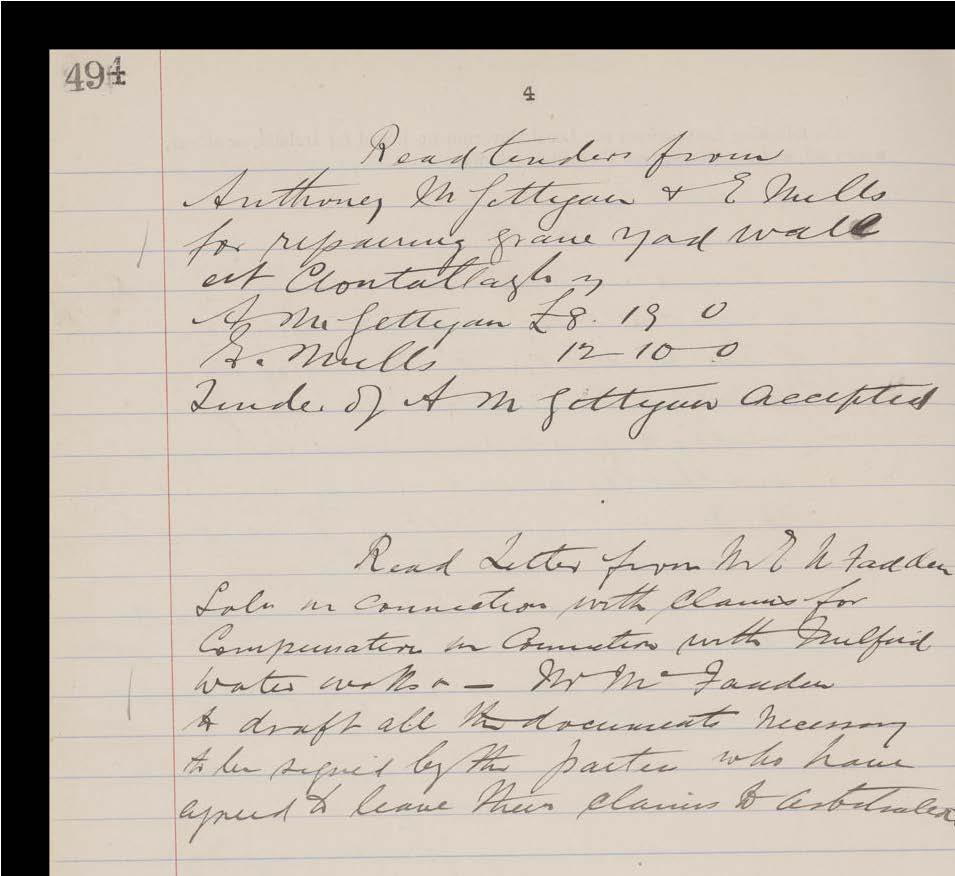 494
4
Read tenders from
Anthoney McGettigan & E Mills
for repairing grave yad wall
at Clontallagh
A McGettigan £8. 19 0
E. Mills 12 10 0
Tender of A McGettigan accepted
Read Letter from W E McFadden
Solr in connection with claims for
Compensation in Connection with Milford
Water works — Mr McFadden
to draft all the documents necessary
to be signed by the parties who have
agreed to leave their claims to arbitration